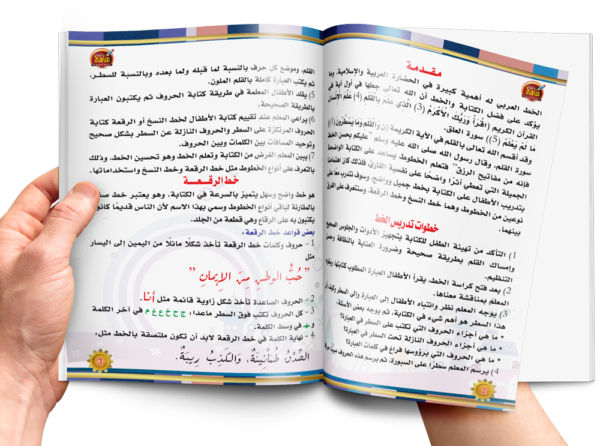 مقدمة
الخط العربي له أهمية كبيرة في الحضارة العربية والإسلامية، وما
يؤكد على فضل الكتابة والخط أن الله تعالى جعلها في أول آية في
القرآن الكريم (اقْرَأْ وَرَبُّكَ الْأَكْرَمُ (3) الَّذِي عَلَّمَ بِالْقَلَمِ (4) عَلَّمَ الْإِنْسَانَ
مَا لَمْ يَعْلَمْ (5)) سورة العلق.
وقد أقسم الله تعالى بالقلم في الآية الكريمة (ن وَالْقَلَمِ وَمَا يَسْطُرُونَ (1))
سورة القلم، وقال رسول الله صلى الله عليه وسلم "عليكم بحسن الخط
فإنه من مفاتيح الرزق" فتعلم الخطوط يساعد على الكتابة الواضحة
الجميلة التي تعطي أثرًا واضحًا على نفسية القارئ، فلذلك كان اهتمامنا
بتدريب الأطفال على الكتابة بخط جميل وواضح، وسوف نتدرب معًا على
نوعين من الخطوط وهما خط النسخ وخط الرقعة، وسنتعرف على الفرق
بينهما.
خطوات تدريس الخط
1) التأكد من تهيئة الطفل للكتابة بتجهيز الأدوات والجلوس الصحيح
وإمساك القلم بطريقة صحيحة وضرورة العناية بالنظافة وحسن
التنظيم.
2) بعد فتح كراسة الخط، يقرأ الأطفال العبارة المطلوب كتابتها ويقوم
المعلم بمناقشة معناها.
3) يوجه المعلم نظر وانتباه الأطفال إلى العبارة وإلى السطر وكيف أن
هذا السطر هو أهم شيء في الكتابة، ثم يوجه بعض الأسئلة:
• ما هي أجزاء الحروف التي تكتب على السطر في العبارة؟
• ما هي أجزاء الحروف النازلة تحت السطر في العبارة؟
• ما هي الحروف التي برؤوسها فراغ في كلمات العبارة؟
4) يرسم المعلم سطرًا على السبورة، ثم يرسم هذه الحروف
القلم، وموضع كل حرف بالنسبة لما قبله ولما بعده وبالنسبة للسطر،
ثم يكتب العبارة كاملة بالقلم الملون.
5) يقلد الأطفال المعلمة في طريقة كتابة الحروف ثم يكتبون العبارة
بالطريقة الصحيحة.
6) يراعي المعلم عند تقييم كتابة الأطفال لخط النسخ أو الرقعة كتابة
الحروف المرتكزة على السطر والحروف النازلة عن السطر بشكل صحيح
وتوحيد المسافات بين الكلمات وبين الحروف.
7) يبين المعلم الغرض من الكتابة وتعلم الخط وهو تحسين الخط، وذلك
بالتعرف على أنواع الخطوط مثل خط الرقعة وخط النسخ واستخداماتها.
خط الرقعة
هو خط واضح وسهل يتميز بالسرعة في الكتابة، وهو يعتبر خط
بالمقارنة لباقي أنواع الخطوط وسمي بهذا الاسم لأن الناس قديمًا كانوا
يكتبون به على الرقاع وهي قطعة من الجلد.
بعض قواعد خط الرقعة:
1 - حروف وكلمات خط الرقعة تأخذ شكلًا مائلًا من اليمين إلى اليسار
مثل
"حُبُّ الوَطَنِ مِنَ الإِيمَانِ"
2 - الحروف الصاعدة تأخذ شكل زاوية قائمة مثل أنا.
3 - كل الحروف تكتب فوق السطر ماعدا: ج ح خ ع غ م في آخر الكلمة
و هـ في وسط الكلمة.
4 - نهاية الكلمة في خط الرقعة لابد أن تكون ملتصقة بالخط مثل:
الصِّدْقُ طُمَأْنِينَةٌ، وَالكَذِبُ رِيبَةٌ.